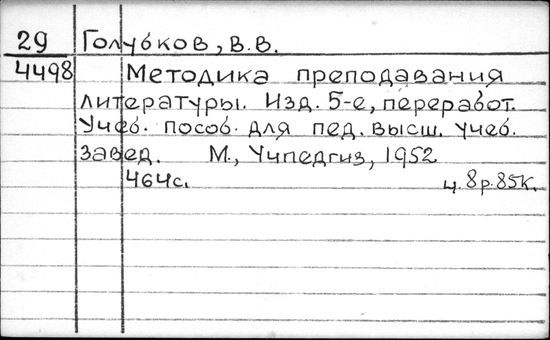 29 Голубков, В.В.
4498 Методика преподавания
литературы. Изд. 5-е, переработ.
Учеб. пособ. для пед. высш. учеб.
завед. М., Учпедгиз, 1952
464с. ц. 8р.85к.